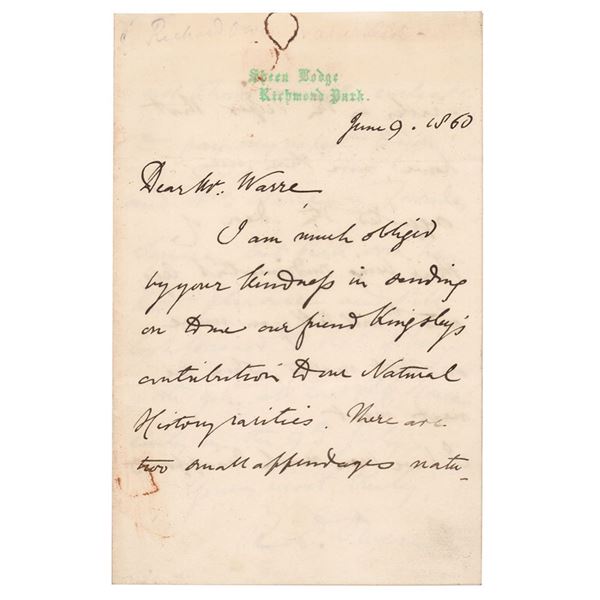 Sheen Lodge
Richmond Park.
June 9. 1860
Dear Mr. Warre,
I am much obliged
by your kindness in sending
on to me our friend Kingsley's
contribution to our Natural
History rarities. There are
two small appendages natu-